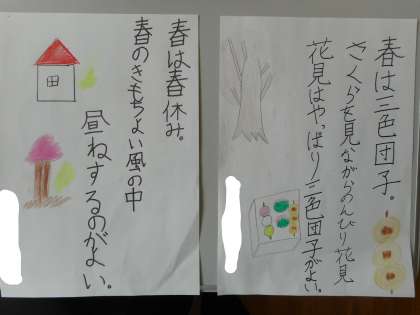 春は三色団子。
さくらを見ながらのんびり花見
花見はやっぱり三色団子がよい。
春は春休み。
春のきもちよい風の中
昼ねするのがよい。